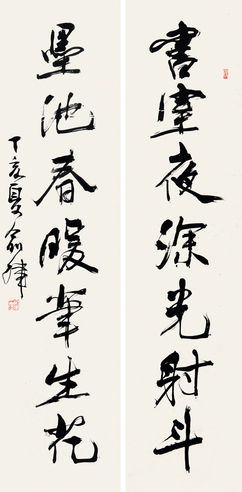 書夜深光射斗
墨池春暖筆生花
丁亥夏俞律